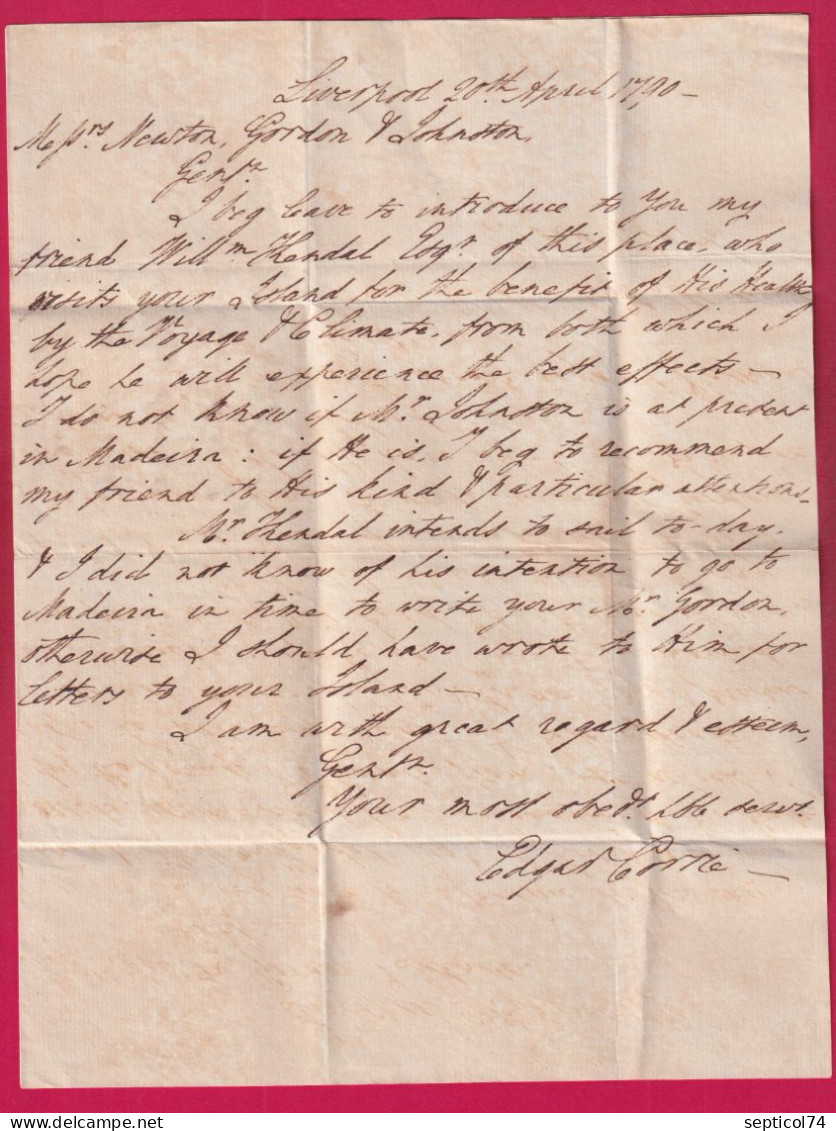 Liverpool 20th April 1790 —
Messrs Newton, Gordon & Johnston,
Gentn
I beg leave to introduce to You my
friend Willm Kendal Esqr of this place, who
visits your Island for the benefit of His Health
by the Voyage & Climate, from both which I
hope he will experience the best effects —
I do not know if Mr Johnston is at present
in Madeira : if He is, I beg to recommend
my friend to His kind & particular attentions.
Mr Kendal intends to sail to-day,
& I did not know of his intention to go to
Madeira in time to write your Mr Gordon,
otherwise I should have wrote to Him for
letters to your Island —
I am with great regard & esteem,
Gentn
Your most obedt hble servt
Edgar Corrie —
septicol74